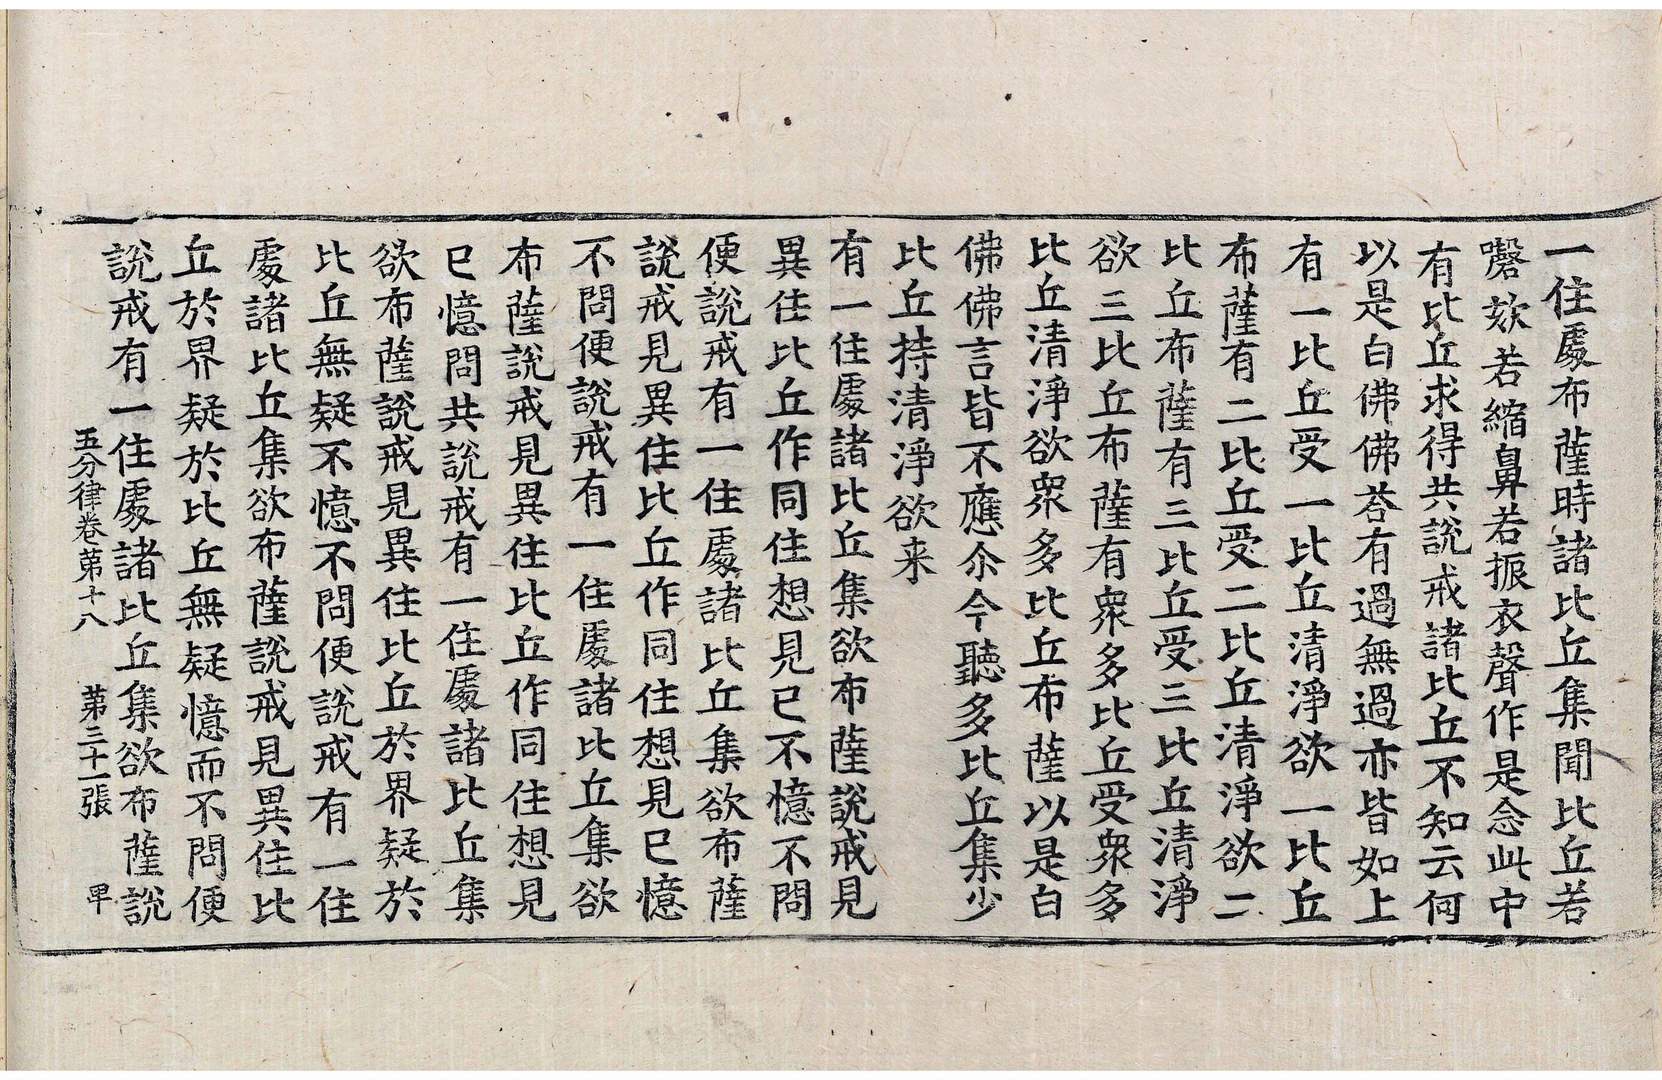 一住處布薩時諸比丘集聞比丘若
謦欬若縮鼻若振衣聲作是念此中
有比丘求得共說戒諸比丘不知云何
以是白佛佛荅有過無過亦皆如上
有一比丘受一比丘清淨欲一比丘
布薩有二比丘受二比丘清淨欲二
比丘布薩有三比丘受三比丘清淨
欲三比丘布薩有衆多比丘受衆多
比丘清淨欲衆多比丘布薩以是白
佛佛言皆不應尒今聽多比丘集少
比丘持清淨欲来
有一住處諸比丘集欲布薩說戒見
異住比丘作同住想見已不憶不問
便說戒有一住處諸比丘集欲布薩
說戒見異住比丘作同住想見已憶
不問便說戒有一住處諸比丘集欲
布薩說戒見異住比丘作同住想見
已憶問共說戒有一住處諸比丘集
欲布薩說戒見異住比丘於界疑於
比丘無疑不憶不問便說戒有一住
處諸比丘集欲布薩說戒見異住比
丘於界疑於比丘無疑憶而不問便
說戒有一住處諸比丘集欲布薩說
五分律卷第十八 第三十一張